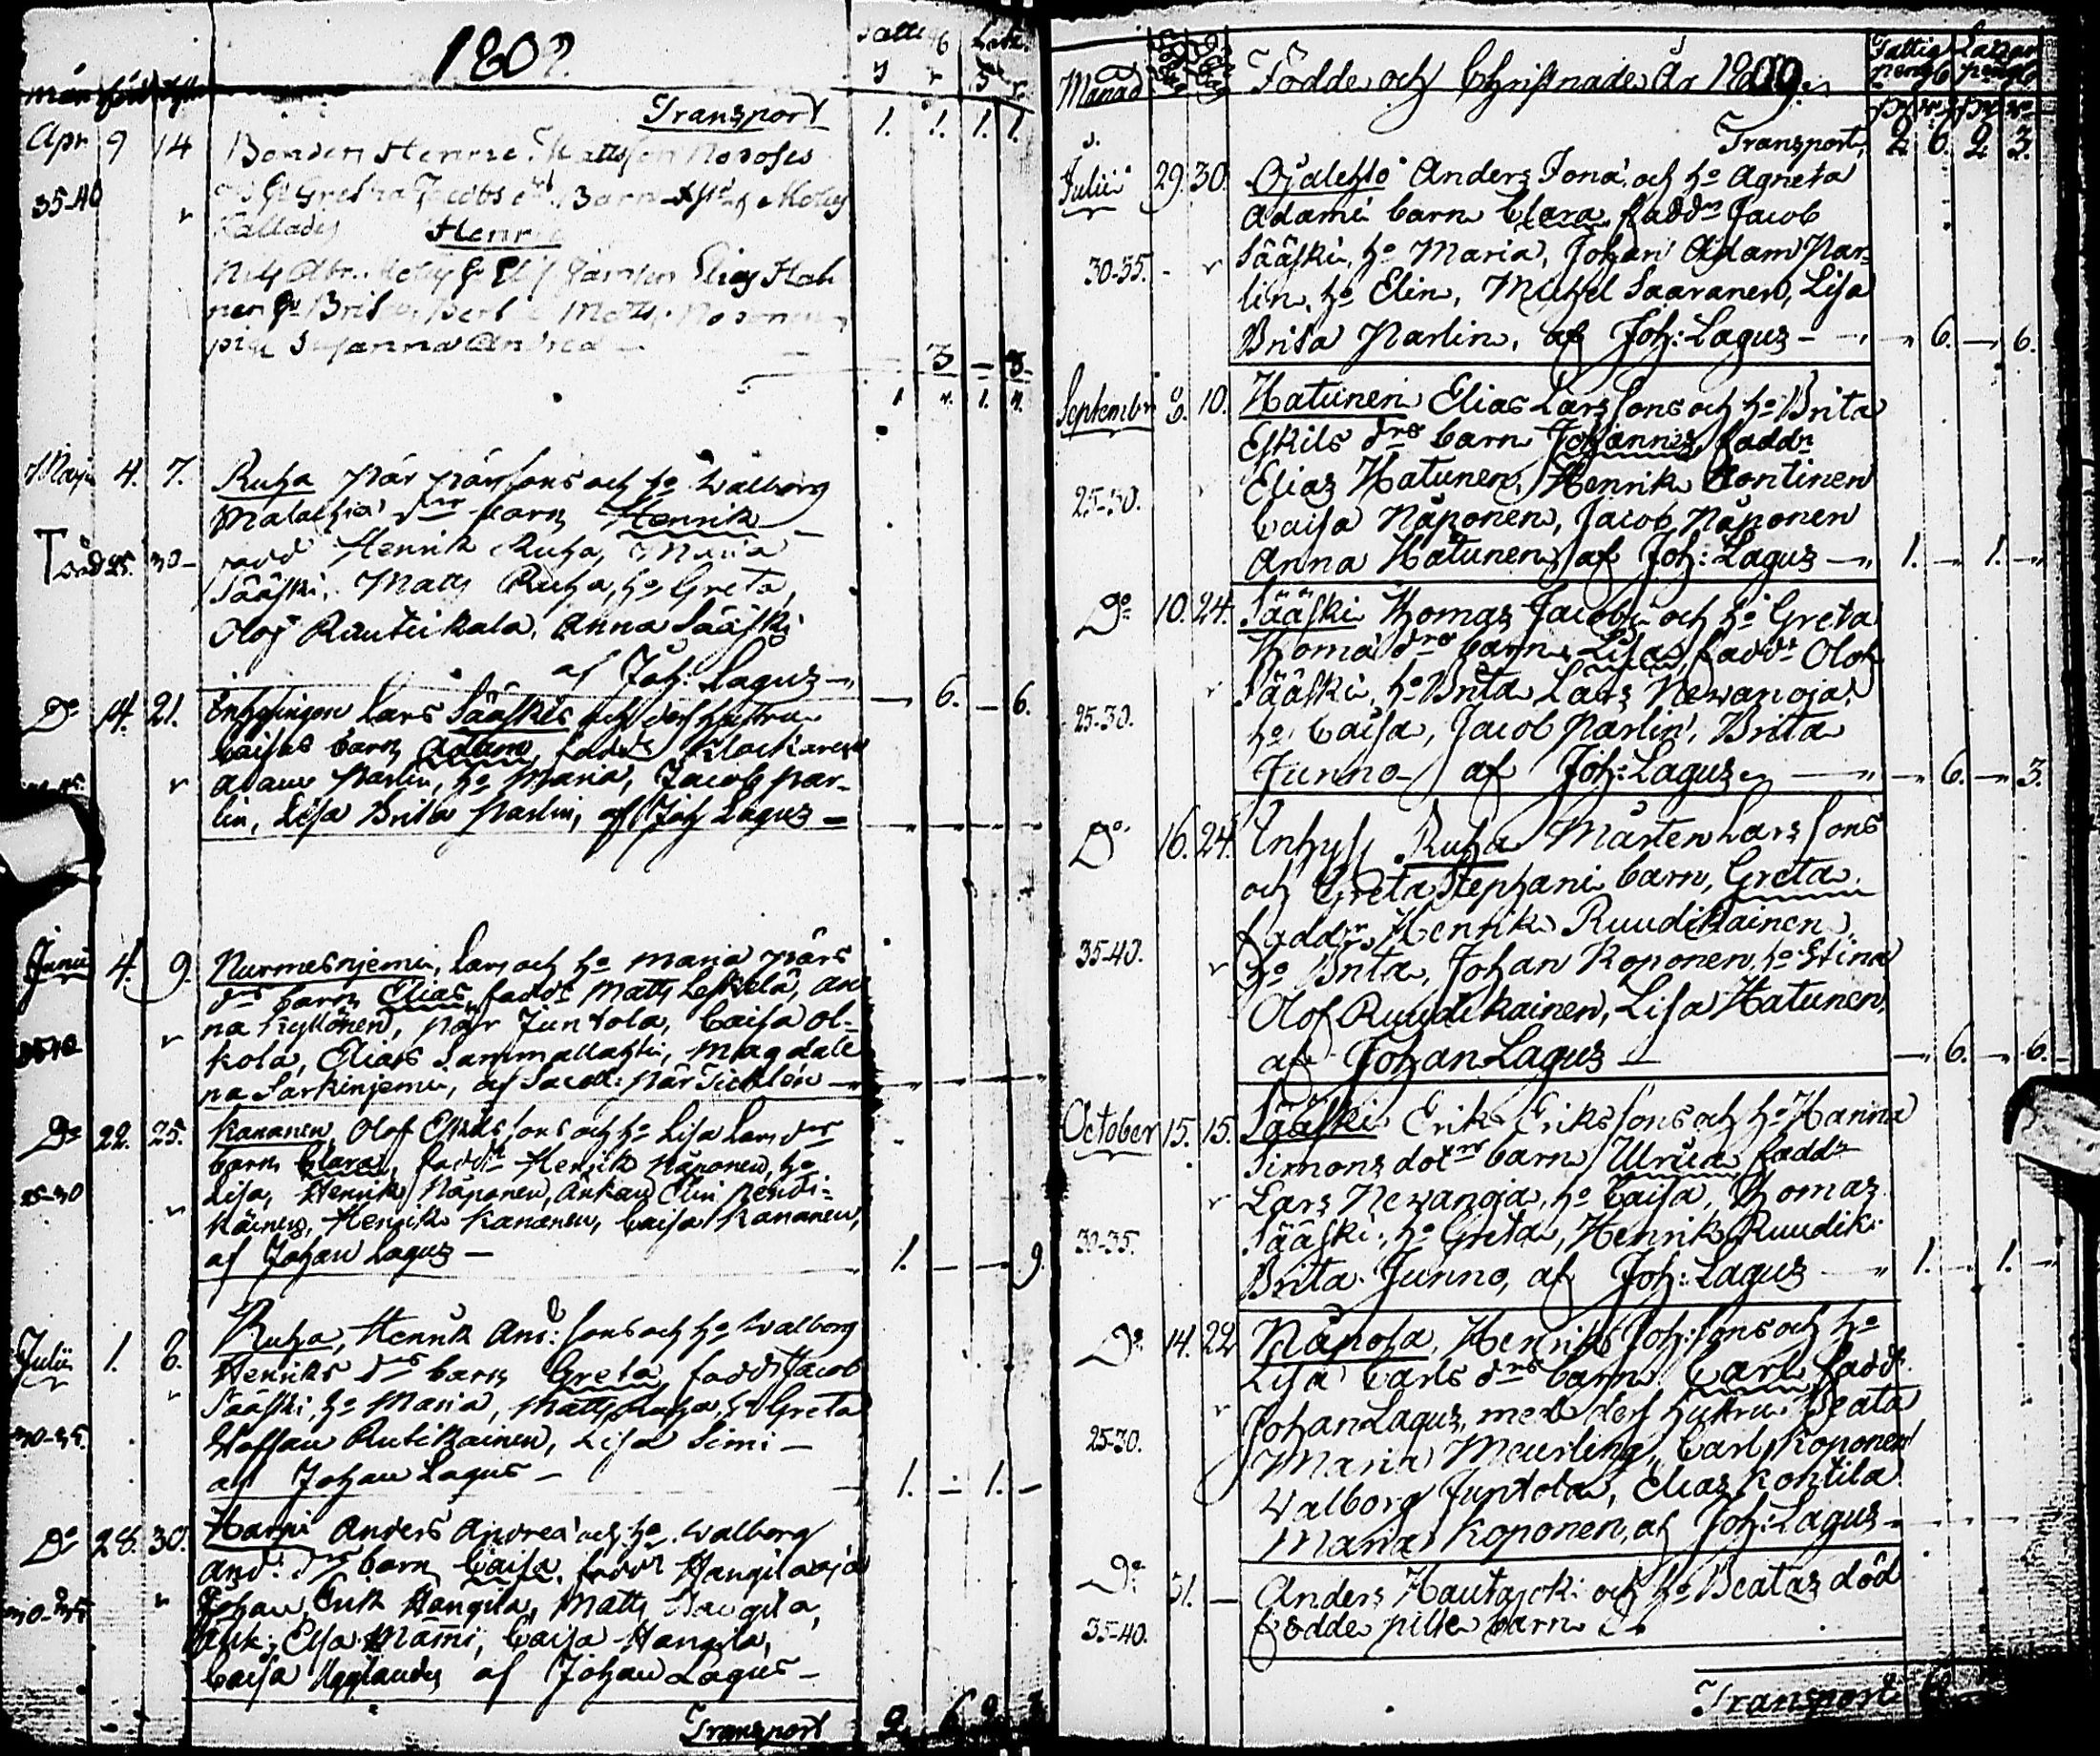 1809.
Transport 1. 1. 1. 1.
Apr 9 14 Bonden Henric Mattsson
35-40 Gretha Jacobs Barn
Kallades Henric
Nils Elias
Brita Matts
Susanna Andrea
3 — 3
1 4. 1. 4.
Maji 4. 7. Ruha Pär Pärssons och ho Walborg
Malachiae dr barn Henrik
fadd Henrik Ruha, Maria
25. 30 Sääski, Matts Ruha, ho Greta,
Olof Rautiikala, Anna Sääski
af Joh: Lagus — 6. — 6.
Do 14. 21. Inhysingen Lars Sääskis och dess hustru
Caisas barn Adam, fadd
Adam Parlin, ho Maria, Jacob Par-
lin, Lisa Brita Parlin, af Joh Lagus —
Junii 4. 9. Nurmesnjemi, Lars och ho Maria Pärs
drs barn Elias, fadd Matts Leskelä, An
na Kyllönen, Pär Juntola, Caisa Ol-
kola, Elias Sammallahti, Magdale
na Särkinjemi, af Sacell: Pär
Do 22. 25. Kananen, Olof Eskilssons och ho Lisa Lars dr
25-30 barn Clara, fadd Henrik Näponen, ho
Lisa, Henrik Näponen, Enkan Elin
käinen, Henrik Kananen, Caisa Kananen,
af Johan Lagus — 1. — — 9.
Julii 1. 6. Ruha, Henrik And: sons och ho Walborg
Henriks drs barn Greta, fadd Jacob
Sääski, ho Maria, Matts Ruha, ho Greta
30-35. Staffan Rutikainen, Lisa Simi —
af Johan Lagus — 1. — 1. —
Do 28. 30. Harju Anders Andreae och ho Walborg
And: drs barn Caisa, fadd Hangilaoja
30-35 Johan, Erik Hangila, Matts Haugila,
Enk: Elsa Mämmi, Caisa Hangila,
Caisa Ugglander af Johan Lagus —
Transport 2. 6 2 3
Månad Födde och Christnade År 1809.
Fattig peng Lazar peng
Transport, 2. 6. 2. 3.
Julii 29. 30. Ojalehto Anders Jonae och ho Agneta
Adami barn Clara, faddr Jacob
30-35. Sääski, ho Maria, Johan Adam Par-
lin, ho Elin, Michel Saaranen, Lisa
Brita Parlin, af Joh: Lagus — — 6. — 6.
Septembr 8. 10. Hatunen Elias Larssons och ho Brita
Eskils drs barn Johannes, faddr
25-30. Elias Hatunen, Henrik Kontinen
Caisa Näponen, Jacob Näponen
Anna Hatunen, af Joh: Lagus — 1. — 1. —
Do 10. 24. Sääski Thomas Jacobi och ho Greta
Thomae drs barn Lisa, faddr Olof
25-30. Sääski, ho Brita Lars Newanoja,
ho Caisa, Jacob Parlin, Brita
Junno af Joh: Lagus — — 6. — 3.
Do 16. 24. Inhyss Ruha Mårten Lars sons
och Greta Stephani barn, Greta.
faddr Henrik Ruudikainen
35-40. ho Brita, Johan Koponen, ho Stina
Olof Ruudikainen, Lisa Hatunen,
af Johan Lagus — — 6. — 6.
October 15. 15. Sääski Erik Eriks sons och ho Hanna
Simons dotrs barn Ulrica, faddr
Lars Newanoja, ho Caisa, Thomas
30-35. Sääski, ho Greta, Henrik Ruudik:
Brita Junno, af Joh: Lagus — 1. — 1. —
Do 14. 22 Näpola, Henriks Joh: sons och ho
Lisa Carls drs barn Carl, faddr
Johan Lagus, med dess hustru Beata
25-30. Maria Meurling, Carl Koponen
Walborg Juntola, Elias Kohtila
Maria Koponen, af Joh: Lagus —
Do 31. — Anders Hautajoki och ho Beatas död
35-40. födde pilte barn
Transport